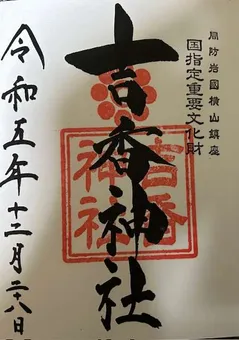 周防岩國横山鎮座
国指定重要文化財
吉香神社
吉香
神社
令和五年十二月二十八日